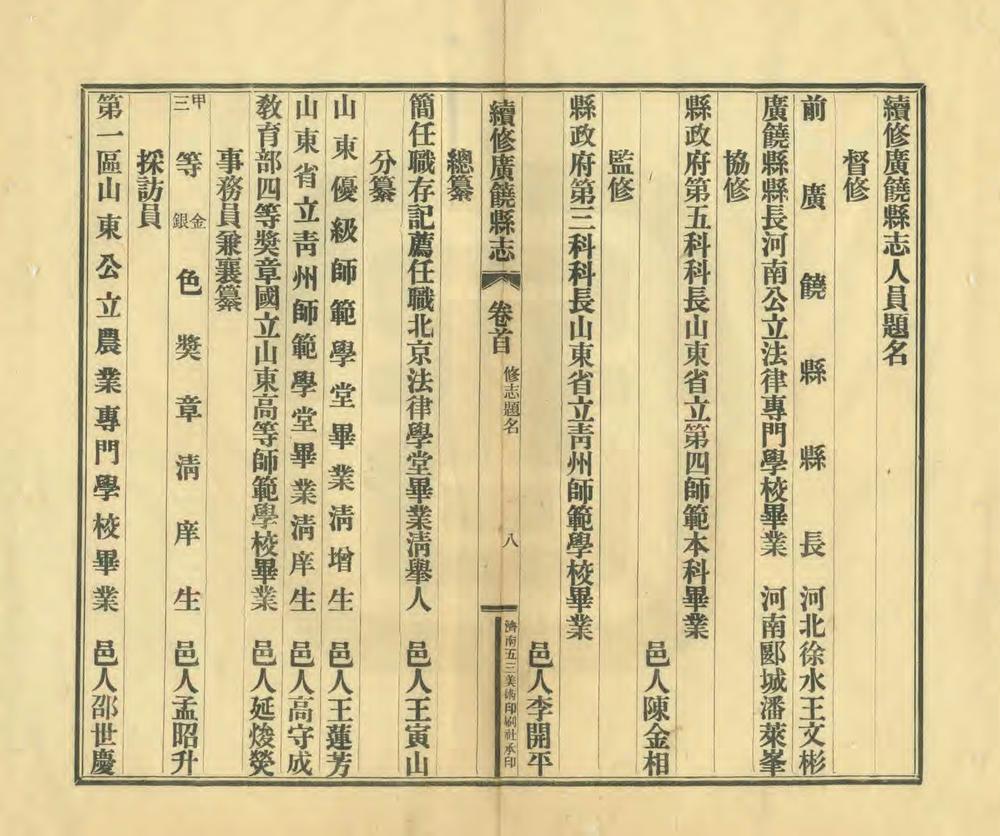 續修廣饒縣志人員題名
督修
前廣饒縣縣長河北徐水王文彬
廣饒縣縣長河南公立法律專門學校畢業 河南郾城潘萊峯
協修
縣政府第五科科長山東省立第四師範本科畢業
邑人陳金相
監修
縣政府第三科科長山東省立青州師範學校畢業
邑人李開平
續修廣饒縣志 卷首 修志題名 八 濟南五三美術印刷社承印
總纂
簡任職存記薦任職北京法律學堂畢業清舉人 邑人王寅山
分纂
山東優級師範學堂畢業清增生 邑人王蓮芳
山東省立青州師範學堂畢業清庠生 邑人高守成
教育部四等獎章國立山東高等師範學校畢業 邑人延焌熒
事務員兼襄纂
甲三等金銀色獎章清庠生 邑人孟昭升
採訪員
第一區山東公立農業專門學校畢業 邑人邵世慶